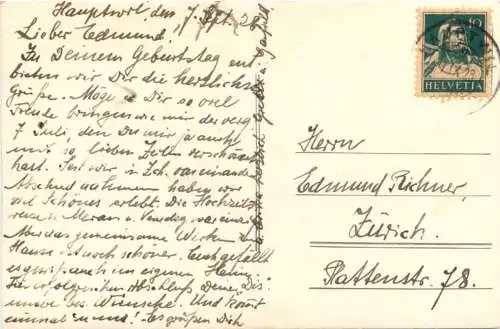 Hauptwil den 7. Sept. 28
Lieber Edmund!
Zu Deinem Geburtstag ent
bieten wir Dir die herzlichste
Grüße. Möge er Dir so viel
Freude bringen wie mir der verg.
7. Juli, den Du mir ja auch
mit so lieben Zeilen verschönt
hast. Seit wir in Zch. voneinander
Abschied nahmen haben wir
viel Schönes erlebt. Die Hochzeits
reise n. Meran u. Venedig war einzig.
Aber das gemeinsame Werken im
Hause ist noch schöner. Euch gefällt
es gewiss auch im eigenen Heim.
Für erfolgreichen Abschluß Deiner Dis.
unsere bes. Wünsche. Und kommt
einmal zu uns! Es grüßen Dich
10
HELVETIA
Herrn
Edmund Richner,
Zürich
Plattenstr. 78.